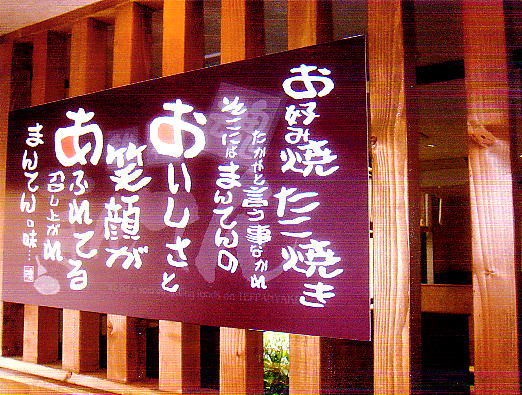 お好み焼 たこ焼き
たかがと言う事なかれ
そこにはまんてんの
おいしさと
笑顔が
あふれてる
召し上がれ
まんてんの味…